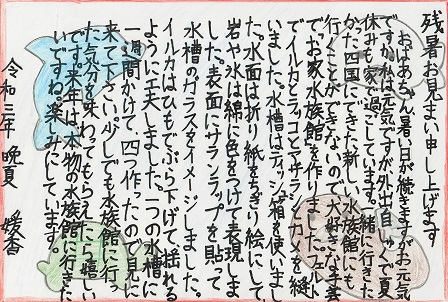 残暑お見まい申し上げます
おばあちゃん、暑い日が続きますがお元気
ですか。私は元気ですが外出自しゅくで夏
休みも家で過ごしています。一緒に行きた
かった四国にできた新しい水族館にも
行くことができないので、大好きな手芸
で「お家水族館」を作りました。フェルト
でイルカとラッコとアザラシとカメを縫
いました。水槽はティッシュ箱を使いまし
た。水面は折り紙をちぎり絵にして
岩や氷は綿に色をつけて表現しま
した。表面にサランラップを貼って
水槽のガラスをイメージしました。
イルカはひもでぶら下げて、揺れる
ように工夫しました。一つの水槽に
一週間かけて、四つ作ったので見に
来て下さい。少しでも水族館に行っ
た気分を味わってもらえたら嬉しい
です。来年は、本物の水族館に行きた
いですね。楽しみにしています。
令和三年 晩夏 媛香